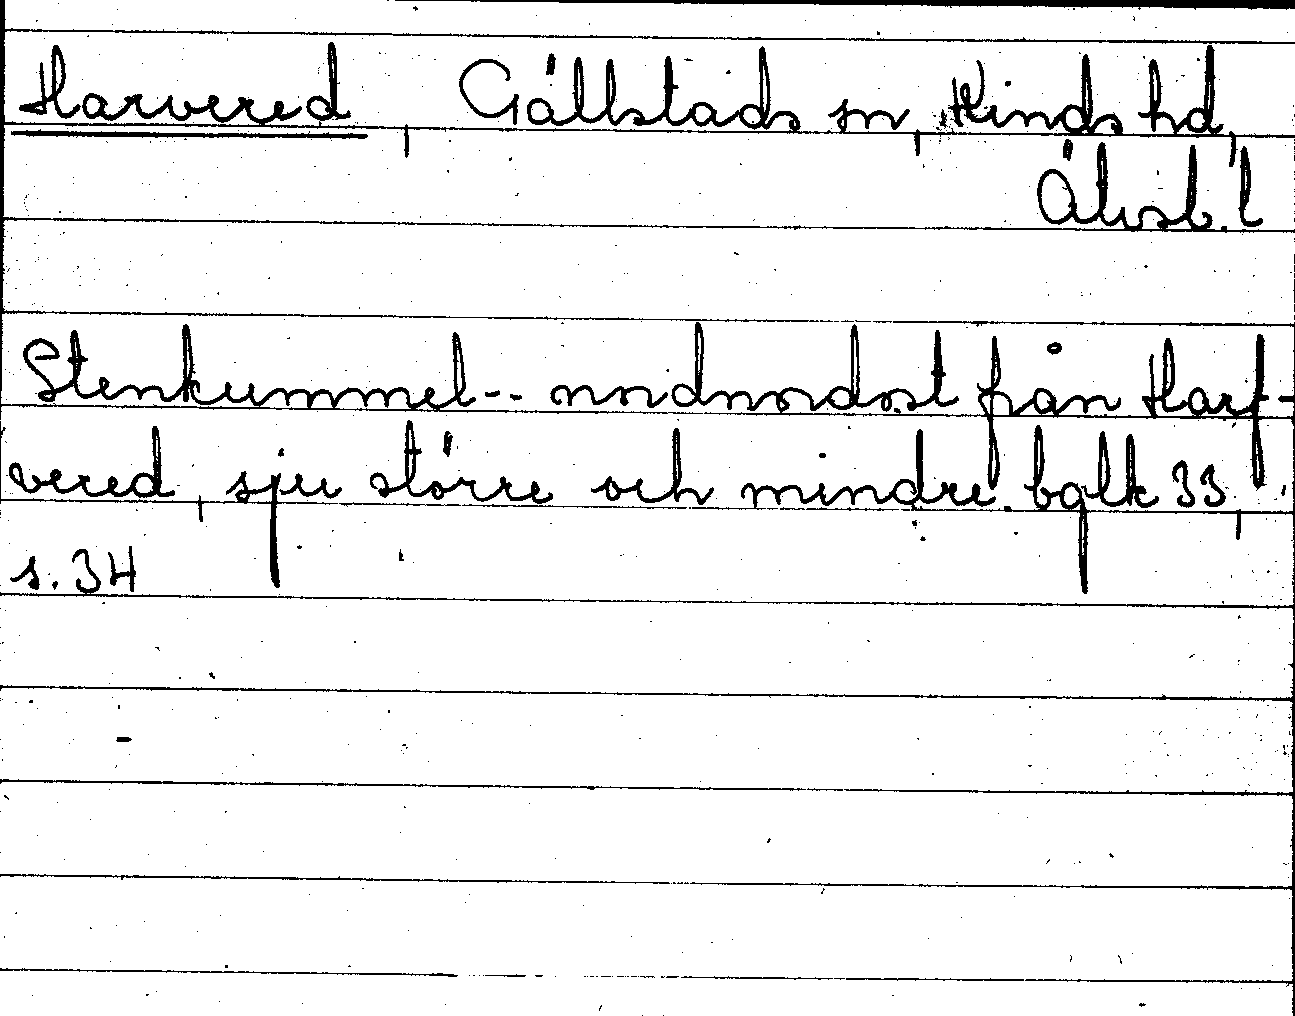 Harvered, Gällstads sn, Kinds hd,
Älvsb. l
Stenkummel -- nordnordost från Harf-
vered, sju större och mindre. bglk 33,
s. 34